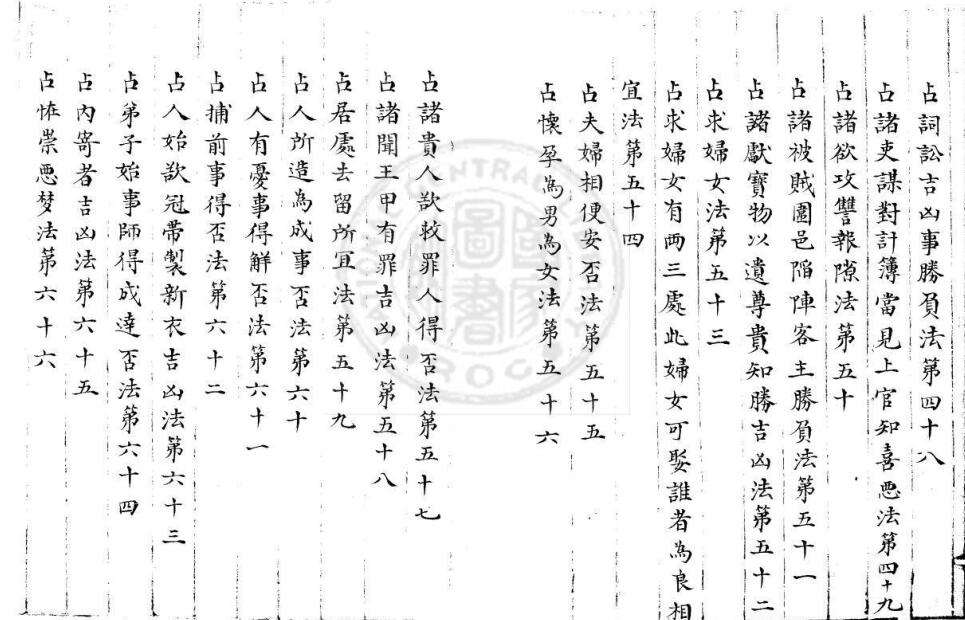 占詞訟吉凶事勝負法第四十八
占諸吏謀對計簿當見上官知喜悪法第四十九
占諸欲攻讐報隙法第五十
占諸被賊圍邑陷陣客主勝負法第五十一
占諸獻寶物以遺尊貴知勝吉凶法第五十二
占求婦女法第五十三
占求婦女有両三處此婦女可娶誰者為良相
宜法第五十四
占夫婦相便安否法第五十五
占懷孕為男為女法第五十六
占諸貴人欲救罪人得否法第五十七
占諸聞王甲有罪吉凶法第五十八
占居處去留所宜法第五十九
占人所造為成事否法第六十
占人有憂事得解否法第六十一
占捕前事得否法第六十二
占人始欲冠帶製新衣吉凶法第六十三
占弟子始事師得成達否法第六十四
占內寄者吉凶法第六十五
占恠祟悪梦法第六十六